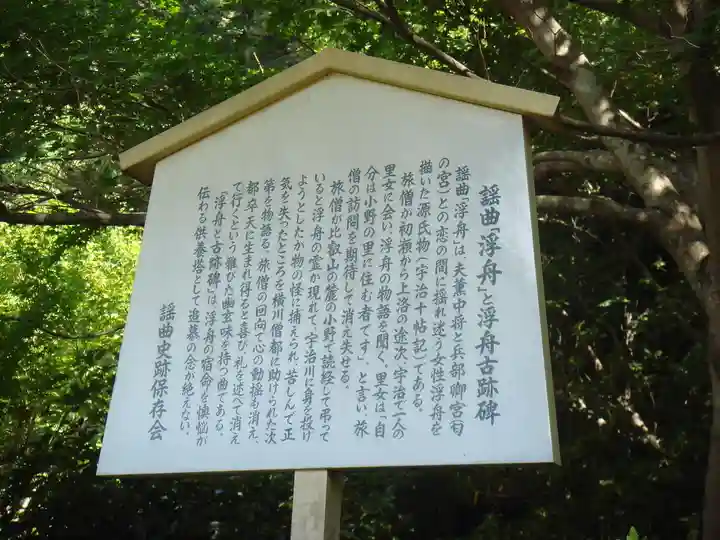 謡曲「浮舟」と浮舟古跡碑
謡曲「浮舟」は、夫薫中将と兵部卿宮(匂
の宮)との恋の間に揺れ迷う女性浮舟を
描いた源氏物(宇治十帖記)である。
旅僧が初瀬から上洛の途次、宇治で一人の
里女に会い、浮舟の物語を聞く。里女は「自
分は小野の里に住む者です」と言い、旅
僧の訪問を期待して消え失せる。
旅僧が比叡山の麓の小野で読経して弔って
いると浮舟の霊が現れて、宇治川に身を投げ
ようとしたが物の怪に捕えられ、苦しんで正
気を失ったところを横川僧都に助けられた次
第を物語る。旅僧の回向で心の動揺も消え、
都卒天に生まれ得ると喜び、礼を述べて消え
て行くという雅びた幽玄味を持つ曲である。
「浮舟と古跡碑」は、浮舟の宿命を懐悩が
伝わる供養塔として追慕の念が絶えない。
謡曲史跡保存会